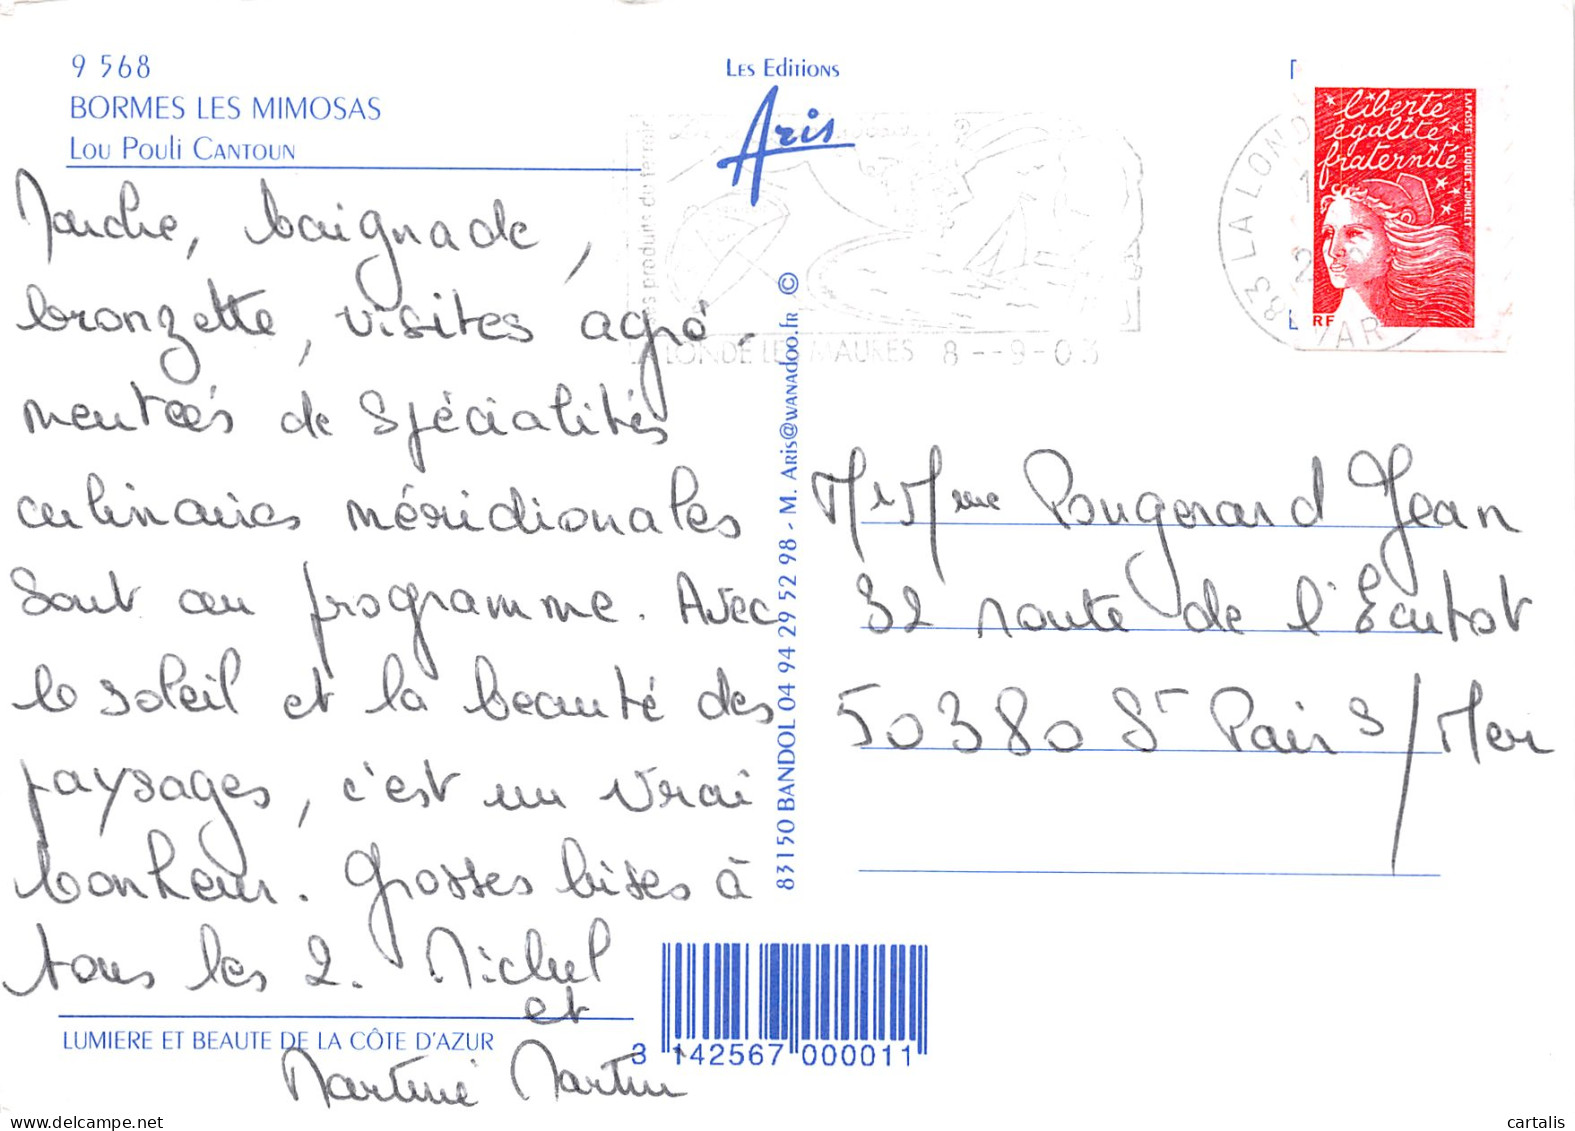 9 568
BORMES LES MIMOSAS
Lou Pouli Cantoun
Les Editions
Aris
Marche, baignade,
bronzette, visites agré-
mentées de spécialités
culinaires méridionales
sont au programme. Avec
le soleil et la beauté des
paysages, c'est un vrai
bonheur. Grosses bises à
tous les 2. Michel
et
Martine Martin
LUMIERE ET BEAUTE DE LA CÔTE D'AZUR
83150 BANDOL 04 94 29 52 98 - M. Aris@wanadoo.fr ©
ses produits du terroir
LA LONDE LES MAURES 8--9-03
83 LA LONDE
VAR
liberté
égalité
fraternité
RF
LA POSTE LUQUET_JUMELET
Mr Mme Pougerard Jean
32 route de l'Ecutot
50380 St Pair s/Mer
3 142567 000011
www.delcampe.net
cartalis